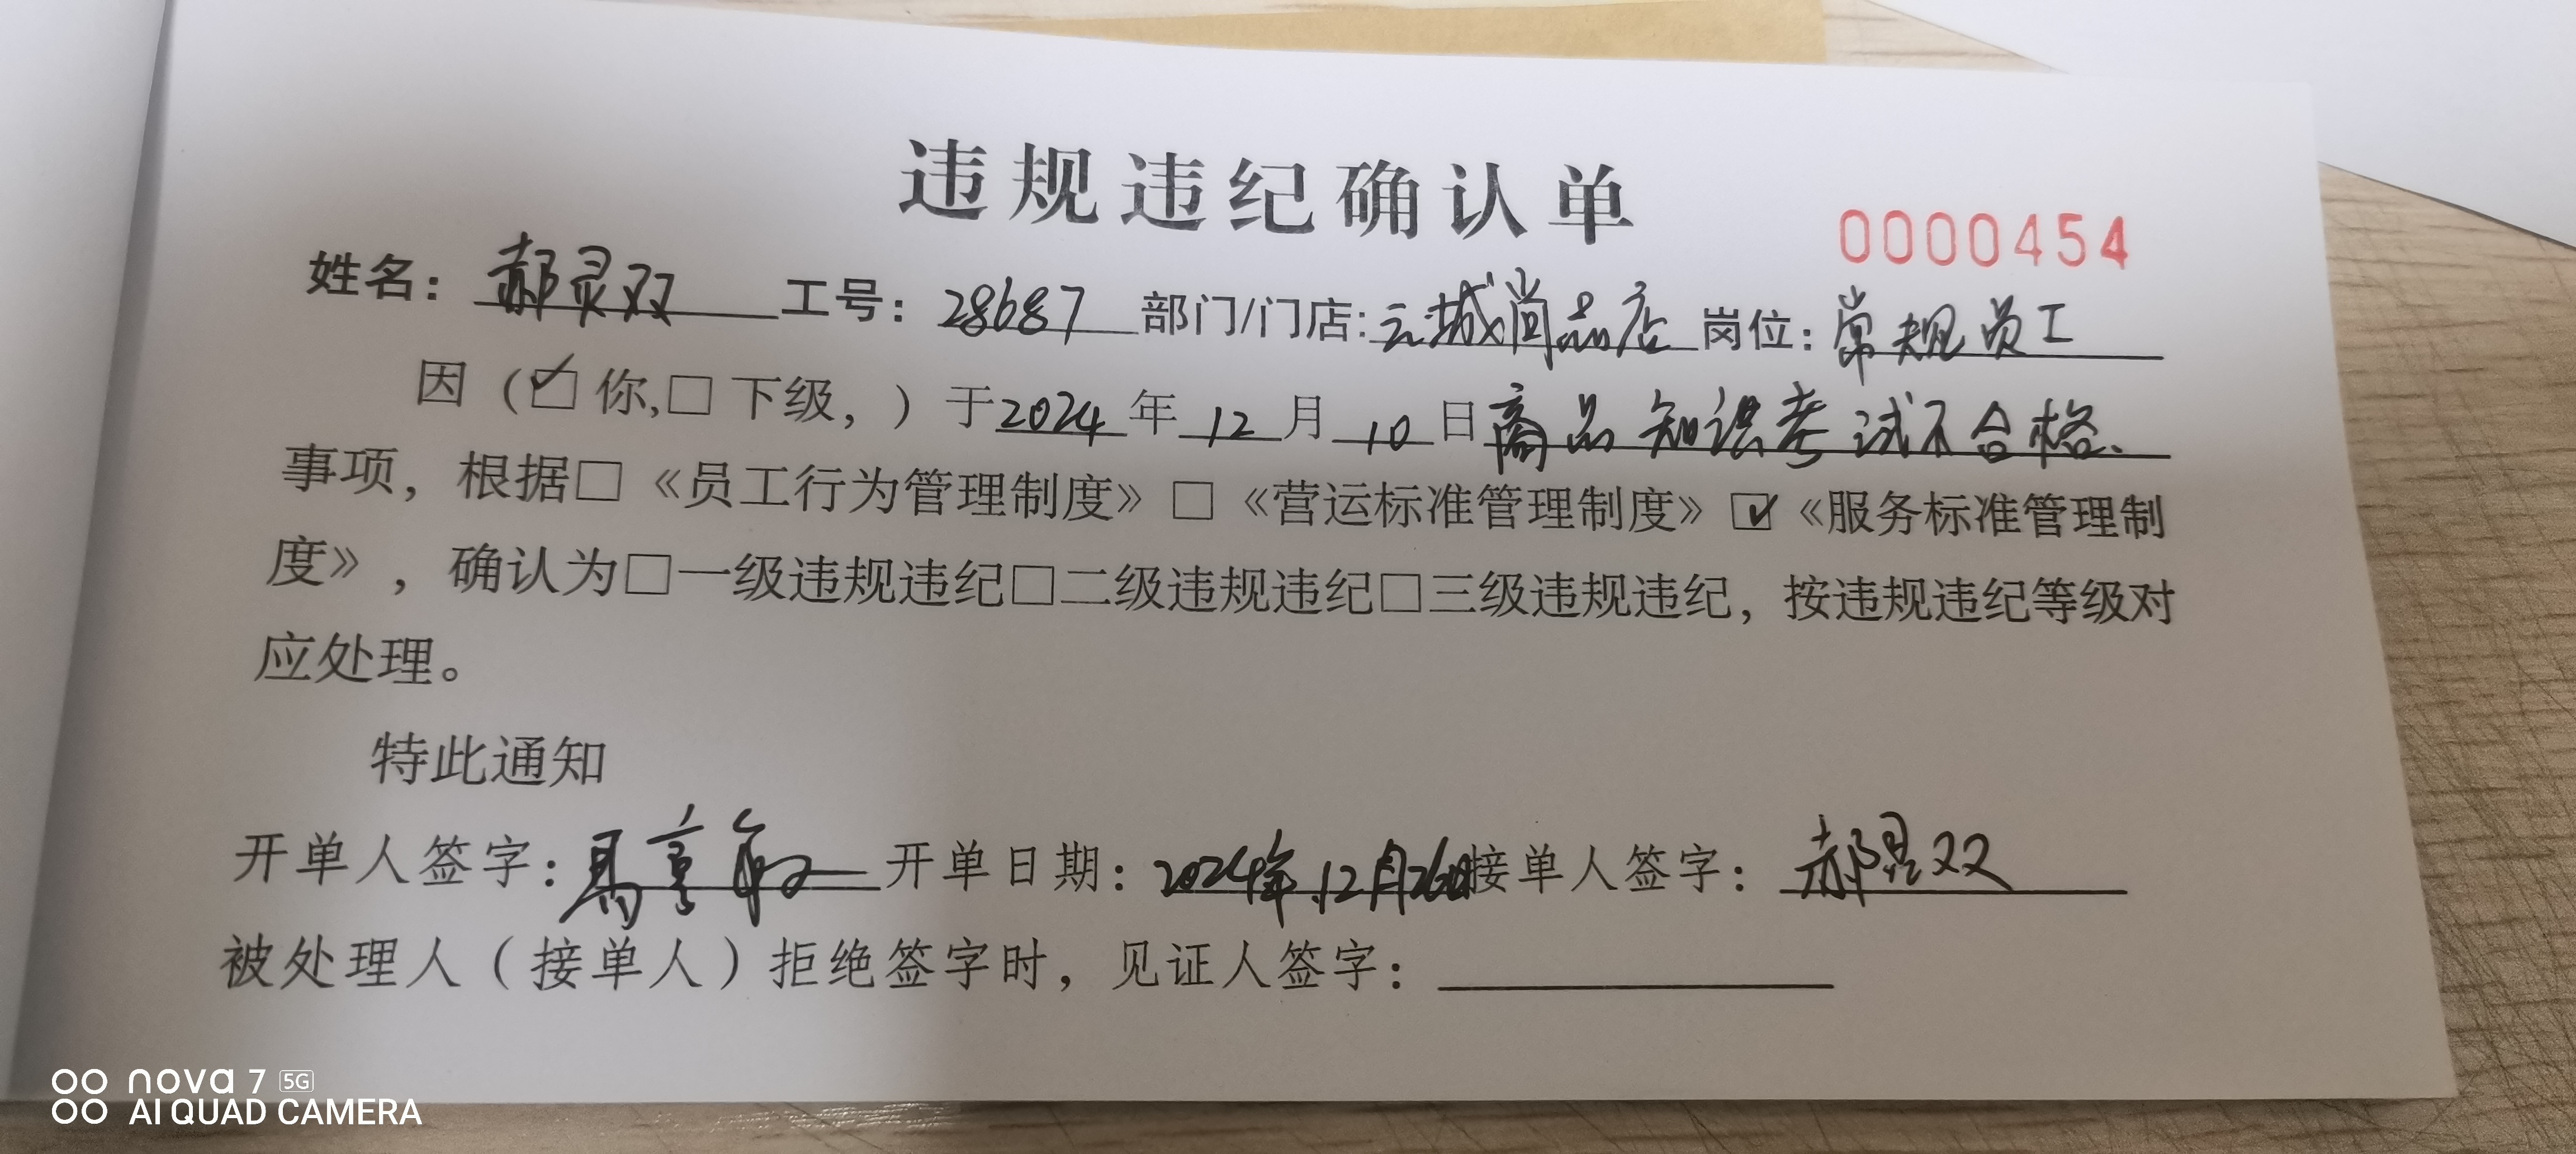 违规违纪确认单
0000454
姓名：郝灵双 工号：28687 部门/门店：云城尚品店 岗位：常规员工
因（☑你，□下级，）于2024年12月10日商品知识考试不合格、
事项，根据□《员工行为管理制度》□《营运标准管理制度》☑《服务标准管理制
度》，确认为□一级违规违纪□二级违规违纪□三级违规违纪，按违规违纪等级对
应处理。
特此通知
开单人签字： 开单日期：2024年.12月26日接单人签字：郝灵双
被处理人（接单人）拒绝签字时，见证人签字：
nova 7 5G
AI QUAD CAMERA